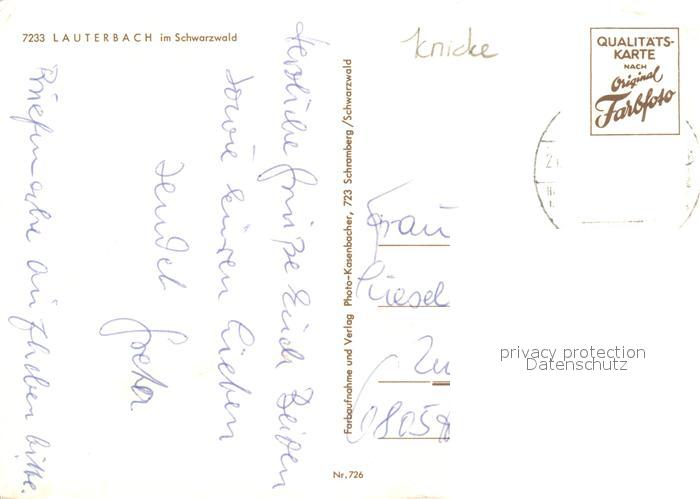 7233 LAUTERBACH im Schwarzwald
Herzliche Grüße Euch Beiden
sowie Euren Lieben
sendet
Briefmarke aufheben bitte.
Farbaufnahme und Verlag Photo-Kasenbacher, 723 Schramberg/Schwarzwald
Nr. 726
Knicke
QUALITÄTS-
KARTE
NACH
Original
Farbfoto
Frau
Liesel
privacy protection
Datenschutz